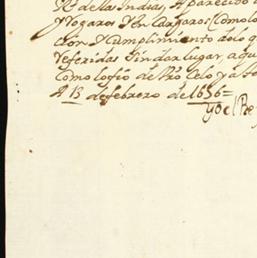 de las Indias, Aparecido
y Rogaros y Encargaros (Como lo
ción y Cumplimiento de lo q
referidas Sin dar lugar, a qu
Como lo fío de Vro Celo y a
A 13 de febrero de 1696=
Yo el Re